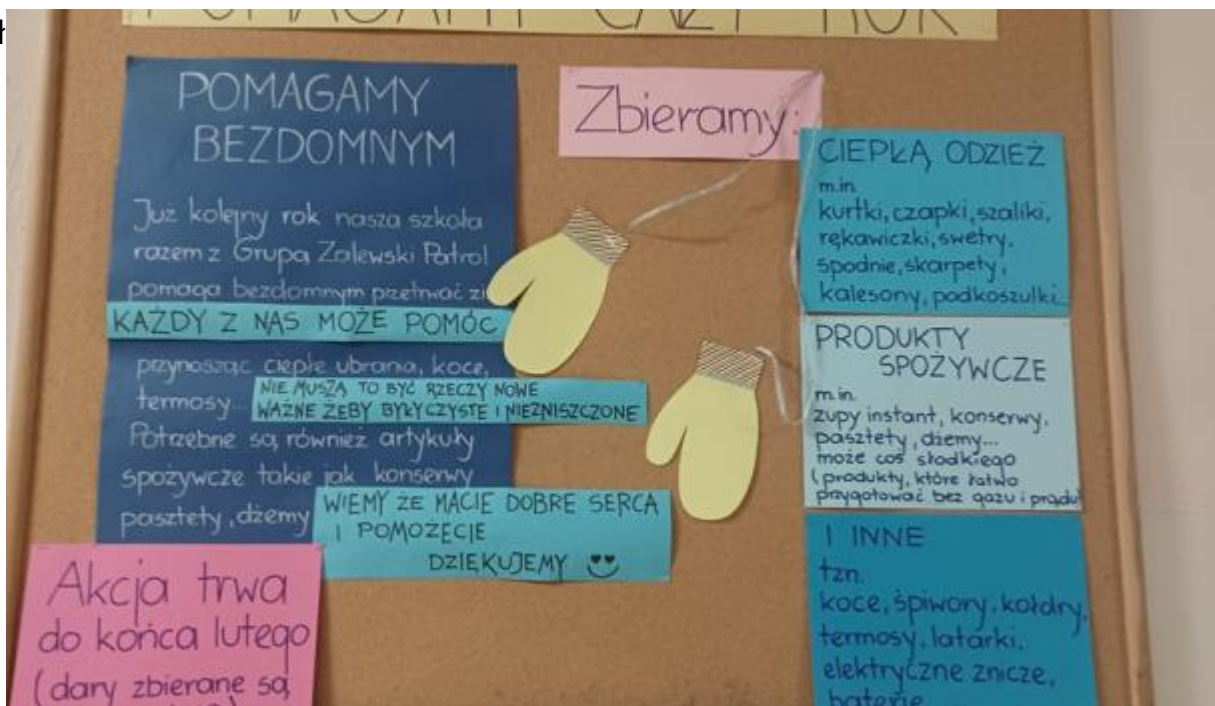 POMAGAMY CAŁY ROK
POMAGAMY
BEZDOMNYM
Już kolejny rok nasza szkoła
razem z Grupą Zalewski Patrol
pomaga bezdomnym przetrwać
KAŻDY Z NAS MOŻE POMÓC
przynosząc ciepłe ubrania, koce,
termosy...
NIE MUSZĄ TO BYĆ RZECZY NOWE
WAŻNE ŻEBY BYŁY CZYSTE I NIEZNISZCZONE
Potrzebne są również artykuły
spożywcze takie jak konserwy
pasztety, dżemy
WIEMY ŻE MACIE DOBRE SERCA
I POMOŻECIE
DZIĘKUJEMY
Akcja trwa
do końca lutego
(dary zbierane są
Zbieramy:
CIEPŁĄ ODZIEŻ
m.in.
kurtki, czapki, szaliki,
rękawiczki, swetry,
spodnie, skarpety,
kalesony, podkoszulki...
PRODUKTY
SPOŻYWCZE
m.in.
zupy instant, konserwy,
pasztety, dżemy...
może coś słodkiego
(produkty, które łatwo
przygotować bez gazu i prądu)
I INNE
tzn.
koce, śpiwory, kołdry,
termosy, latarki,
elektryczne znicze,
baterie